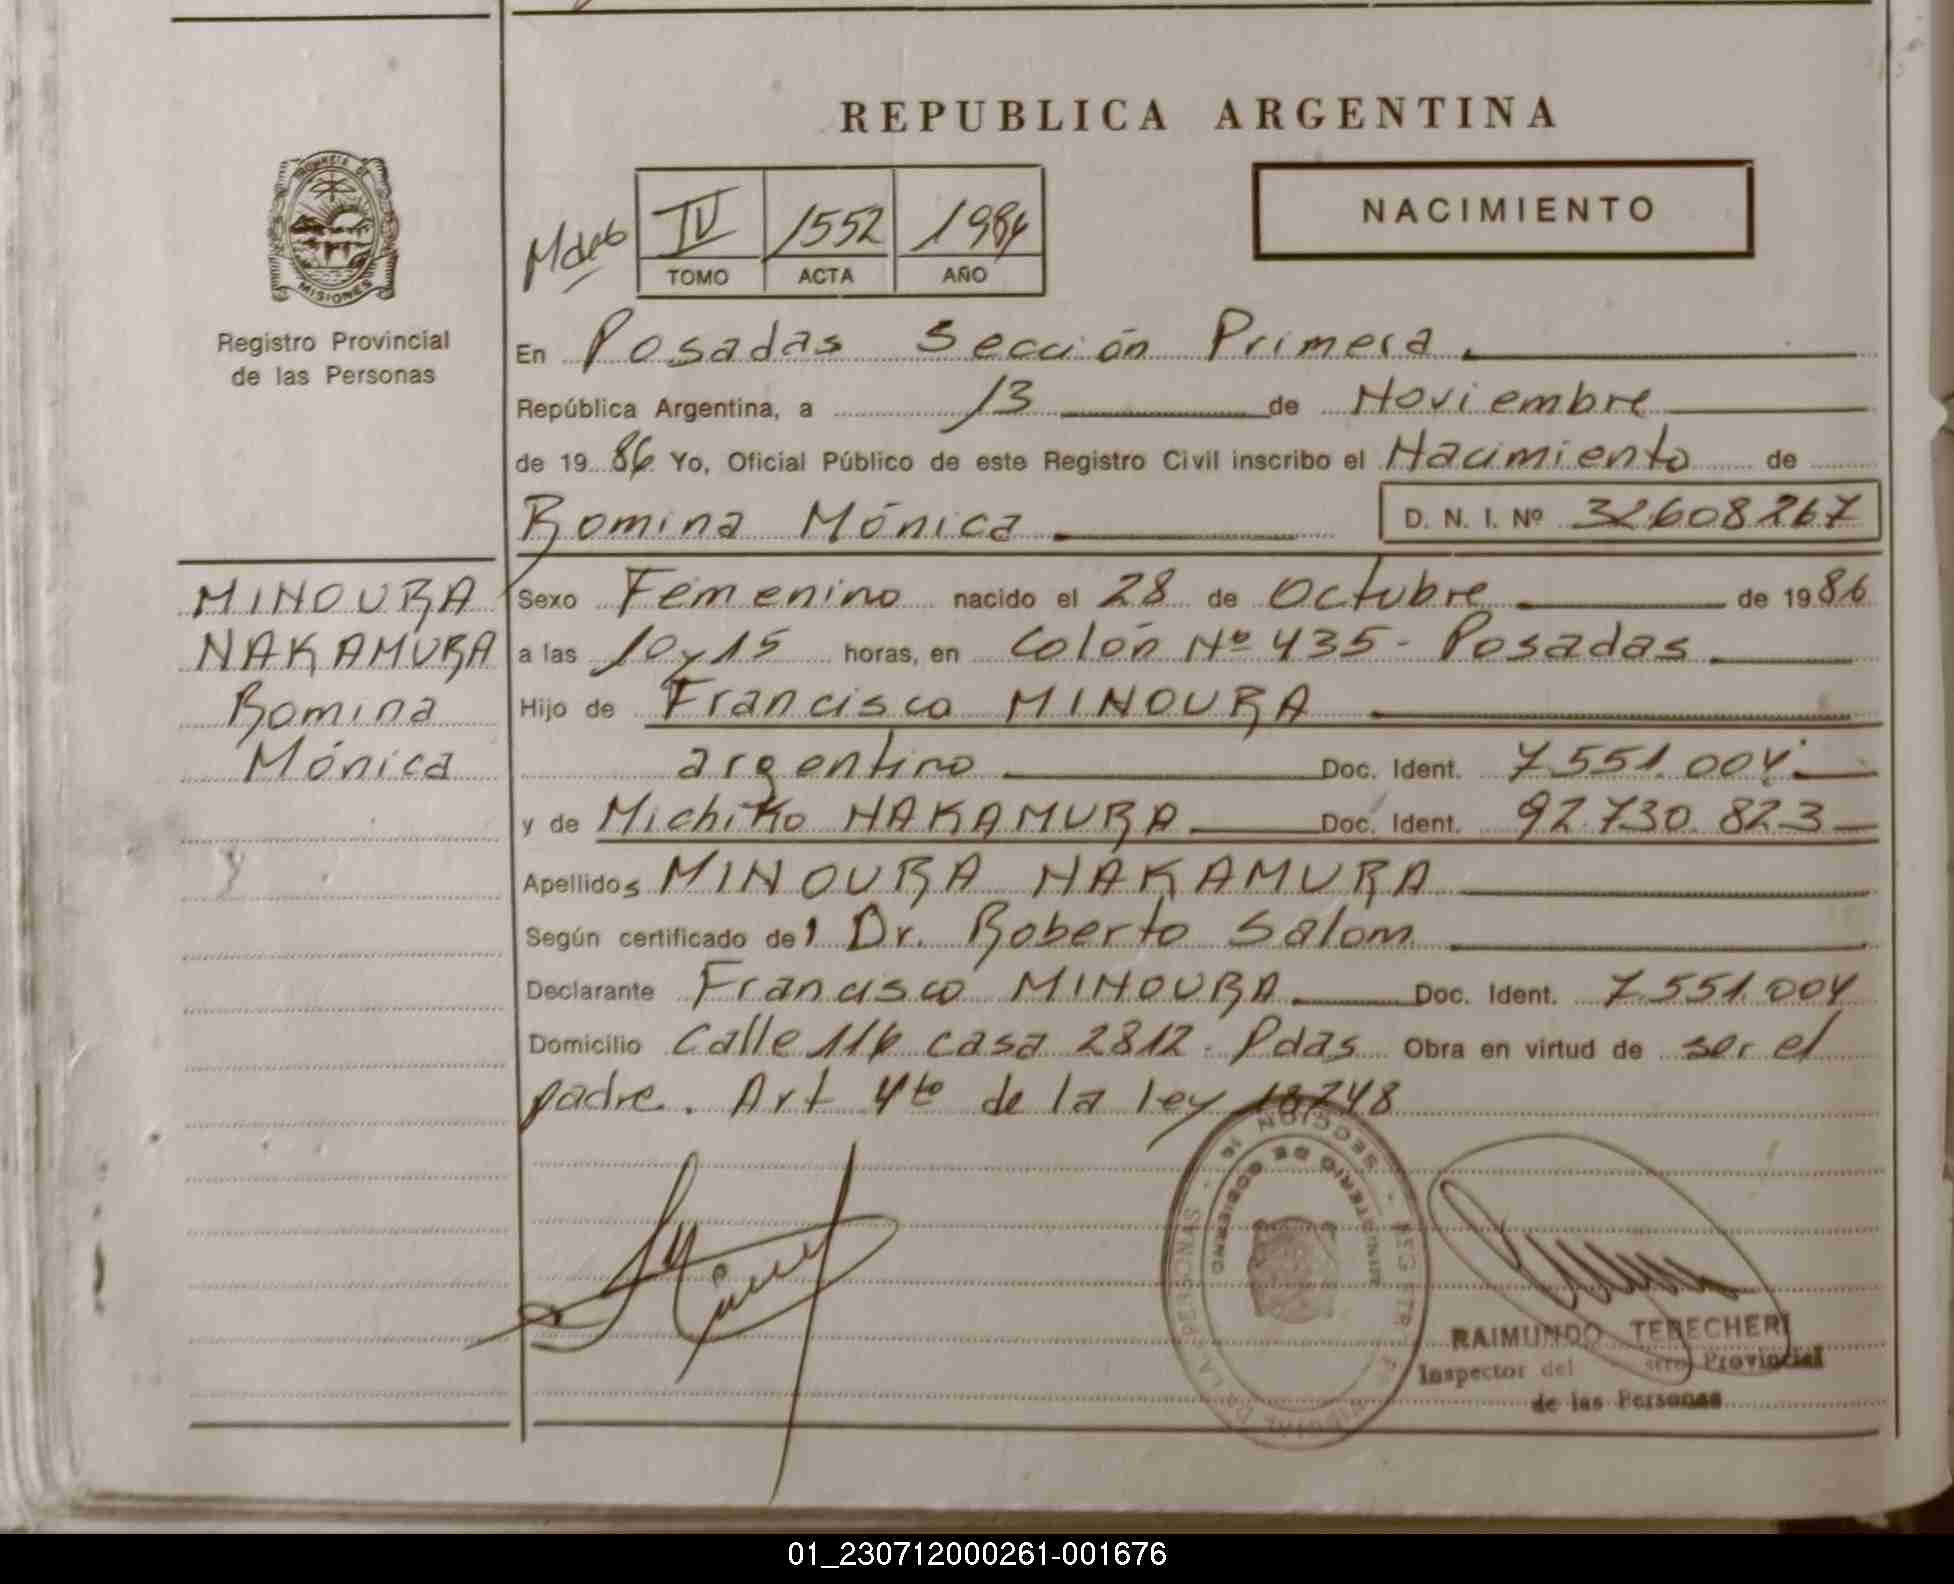 REPUBLICA ARGENTINA
PROVINCIA DE
MISIONES
Registro Provincial
de las Personas
IV 1552 1986
TOMO ACTA AÑO
NACIMIENTO
En Posadas Sección Primera
República Argentina, a 13 de Noviembre
de 19 86 Yo, Oficial Público de este Registro Civil inscribo el Nacimiento de
Romina Mónica D. N. I. Nº 32608267
MINOURA
NAKAMURA
Romina
Mónica
Sexo Femenino nacido el 28 de Octubre de 19 86
a las 10 y 15 horas, en Colón Nº 435 - Posadas
Hijo de Francisco MINOURA
argentino Doc. Ident. 7.551.004.
y de Michiko NAKAMURA Doc. Ident. 92.730.823
Apellidos MINOURA NAKAMURA
Según certificado del Dr. Roberto Salom
Declarante Francisco MINOURA Doc. Ident. 7.551.004
Domicilio Calle 116 casa 2812 - Pdas Obra en virtud de ser el
padre. Art 4to de la ley 18248
SECCION 1a - REG STR PERSONAS
MINISTERIO DE GOBIERNO
RAIMUNDO TEBECHERI
Inspector del Provincial
de las Personas
01_230712000261-001676